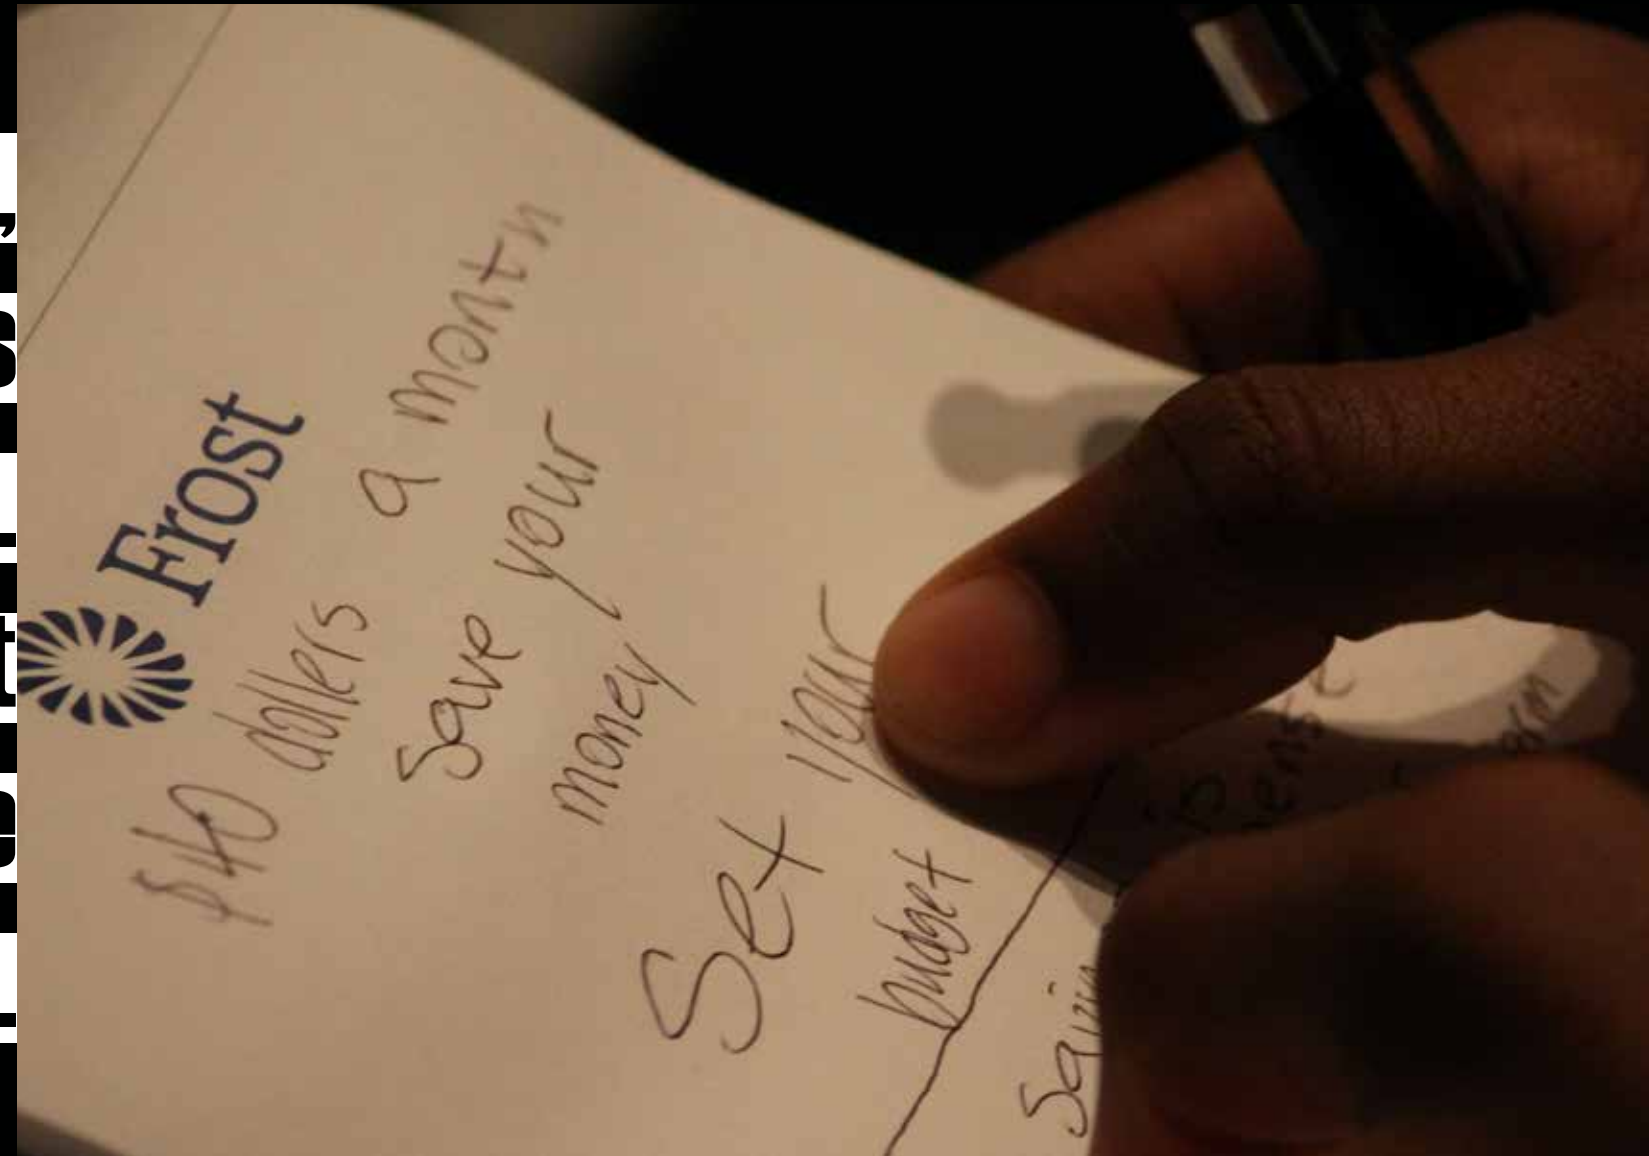 Frost
$40 dollers a month
Save your
money
Set your
budget